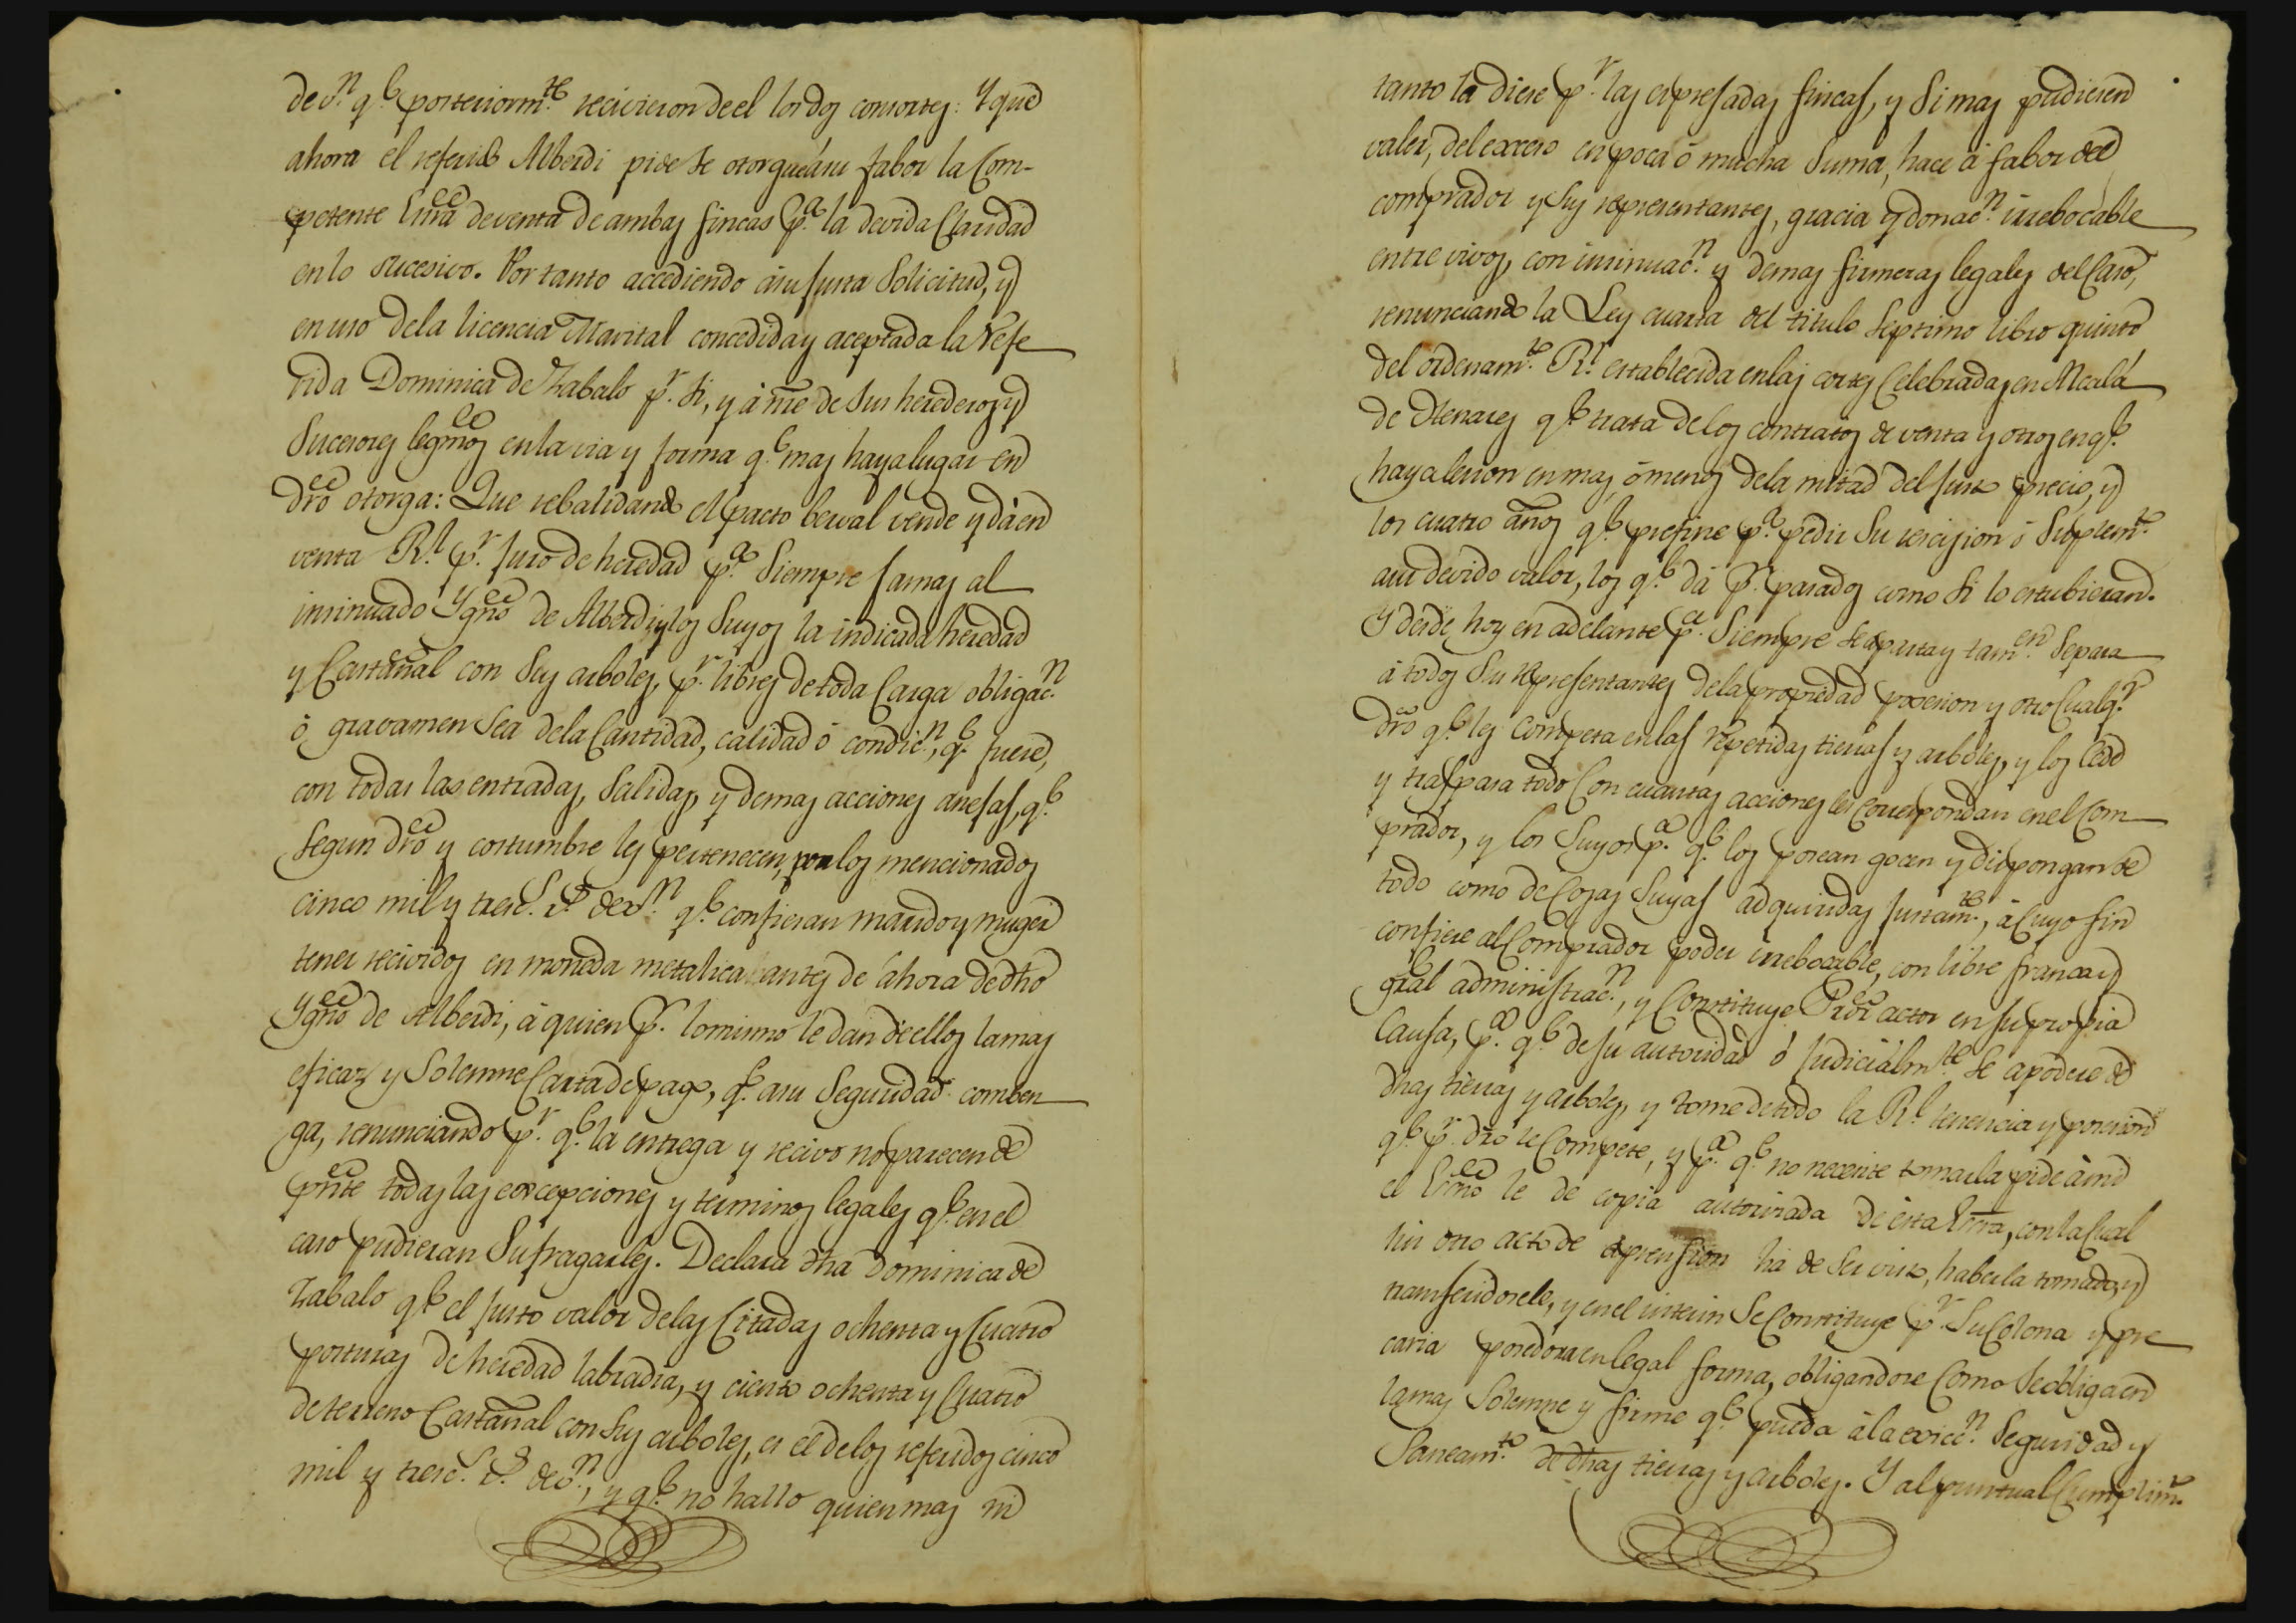 de v.n q.e posteriorm.te recivieron de el los dos consortes: Y que
ahora el referido Alberdi pide se otorgue á su fabor la Com-
petente Escra de venta de ambas fincas p.a la devida Claridad
en lo sucesivo. Por tanto accediendo á su justa Solicitud, y
en uso de la licencia Marital concedida y aceptada la Refe
rida Dominica de Zabalo p.r si, y à nre de sus herederos y
Sucesores legmos en la via y forma q.e mas haya lugar en
dro otorga: Que rebalidando el pacto berval vende y dà en
venta R.l p.r juro de heredad p.a Siempre jamas al
insinuado Ygno de Alberdi y los Suyos la indicada heredad
y Castañal con Sus arboles, p.r libres de toda Carga obligac.n
ò gravamen Sea de la Cantidad, calidad ó condic.n, q.e fuere,
con todas las entradas, Salidas, y demas acciones anejas, q.e
Segun dro y costumbre les pertenecen, por los mencionados
cinco mil y tresc.s r.s de v.n q.e confiesan marido y muger
tener recividos en moneda metalica antes de ahora de dho
Ygno de Alberdi, à quien p.r lo mismo le dan de ellos la mas
eficaz y Solemne Carta de pago, q.e a su Seguridad comben
ga, renunciando p.r q.e la entrega y recivo no parecen de
pnte todas las excepciones y terminos legales q.e en el
caso pudieran Sufragarles. Declara dha Dominica de
Zabalo q.e el justo valor de las Citadas ochenta y Cuatro
posturas de heredad labradia, y ciento ochenta y Cuatro
de terreno Castañal con Sus arboles, es el de los referidos cinco
mil y tresc.s r.s de v.n, y q.e no hallo quien mas ni
tanto la diese p.r las expresadas fincas, y Si mas pudiesen
valer, del exceso en poca ó mucha Suma, hace à fabor del
comprador y Sus representantes, gracia y donac.n irrebocable
entre vivos, con insinuac.n y demas firmezas legales del Caso,
renunciando la Ley cuarta del titulo Septimo libro quinto
del ordenam.to R.l establecida en las cortes Celebradas en Alcalá
de Henares q.e trata de los contratos de venta y otros en q.e
haya lesion en mas, ó menos de la mitad del justo precio, y
los cuatro años q.e prefine p.a pedir Su rescision ó Suplem.to
a su devido valor, los q.e dá p.r pasados como Si lo estubieran.
Y desde hoy en adelante p.a Siempre Se aparta y tam.en Separa
à todos Sus representantes de la propiedad posesion y otro Cualq.r
dro q.e les Competa en las repetidas tierras y arboles, y los Cede
y traspasa todo Con cuantas acciones les Correspondan en el Com
prador, y los Suyos p.a q.e los posean gocen y dispongan de
todo como de Cosas Suyas adquiridas justam.te, à Cuyo fin
confiere al Comprador poder irrebocable, con libre franca y
gral administrac.n, y Constituye Pror actor en su propia
Causa, p.a q.e de su autoridad ó judicialm.te Se apodere de
dhas tierras y arboles, y tome de todo la R.l tenencia y posesion
q.e p.r dro le Compete, y p.a q.e no necesite tomarla pide à mi
el Escno le de copia autorizada de esta Escra, con la Cual
sin otro acto de aprension ha de Ser visto, haberla tomado, y
transferidosele, y en el interin Se Constituye p.r Su Colona y pre
caria posedora en legal forma, obligandose Como Se obliga en
la mas Solemne y firme q.e pueda à la evicc.n Seguridad y
Saneam.to de dhas tierras y arboles. Y al puntual Cumplim.to